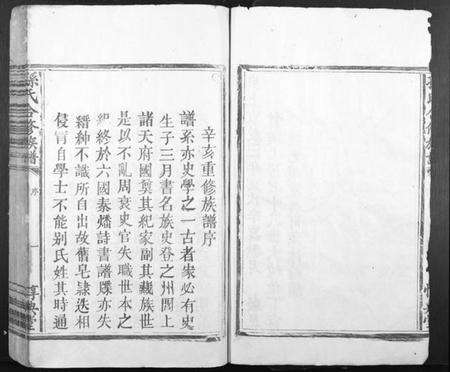 辛亥重修族譜序
譜系亦史學之一古者家必有史
生子三月書名族史登之州閭上
諸天府國奠其紀家副其藏族世
是以不亂周衰史官失職世本之
終於六國秦燔詩書譜牒亦失
縉紳不識所自出故舊皂隸迭相
侵冒自學士不能别氏姓其時通
孫氏合修族譜
序
一
惇典堂